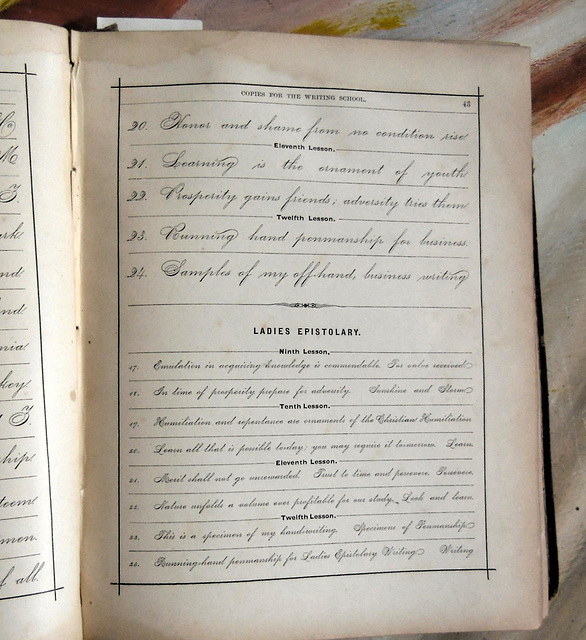 Co
M
J.
ark
nd
nd
nia
key
J.
ship
teem
men.
f all.
COPIES FOR THE WRITING SCHOOL. 43
20. Honor and shame from no condition rise
Eleventh Lesson.
21. Learning is the ornament of youth
22. Prosperity gains friends; adversity tries them
Twelfth Lesson.
23. Running hand penmanship for business.
24. Samples of my off hand, business writing
LADIES EPISTOLARY.
Ninth Lesson.
17. Emulation in acquiring knowledge is commendable. For value received
18. In time of prosperity prepare for adversity. Sunshine and Storm
Tenth Lesson.
19. Humiliation and repentance are ornaments of the Christian Humiliation
20. Learn all that is possible today; you may require it tomorrow. Learn
Eleventh Lesson.
21. Merit shall not go unrewarded. Trust to time and persevere. Persevere.
22. Nature unfolds a volume ever profitable for our study. Look and learn
Twelfth Lesson.
23. This is a specimen of my hand-writing. Specimens of Penmanship
24. Running-hand penmanship for Ladies Epistolary Writing Writing